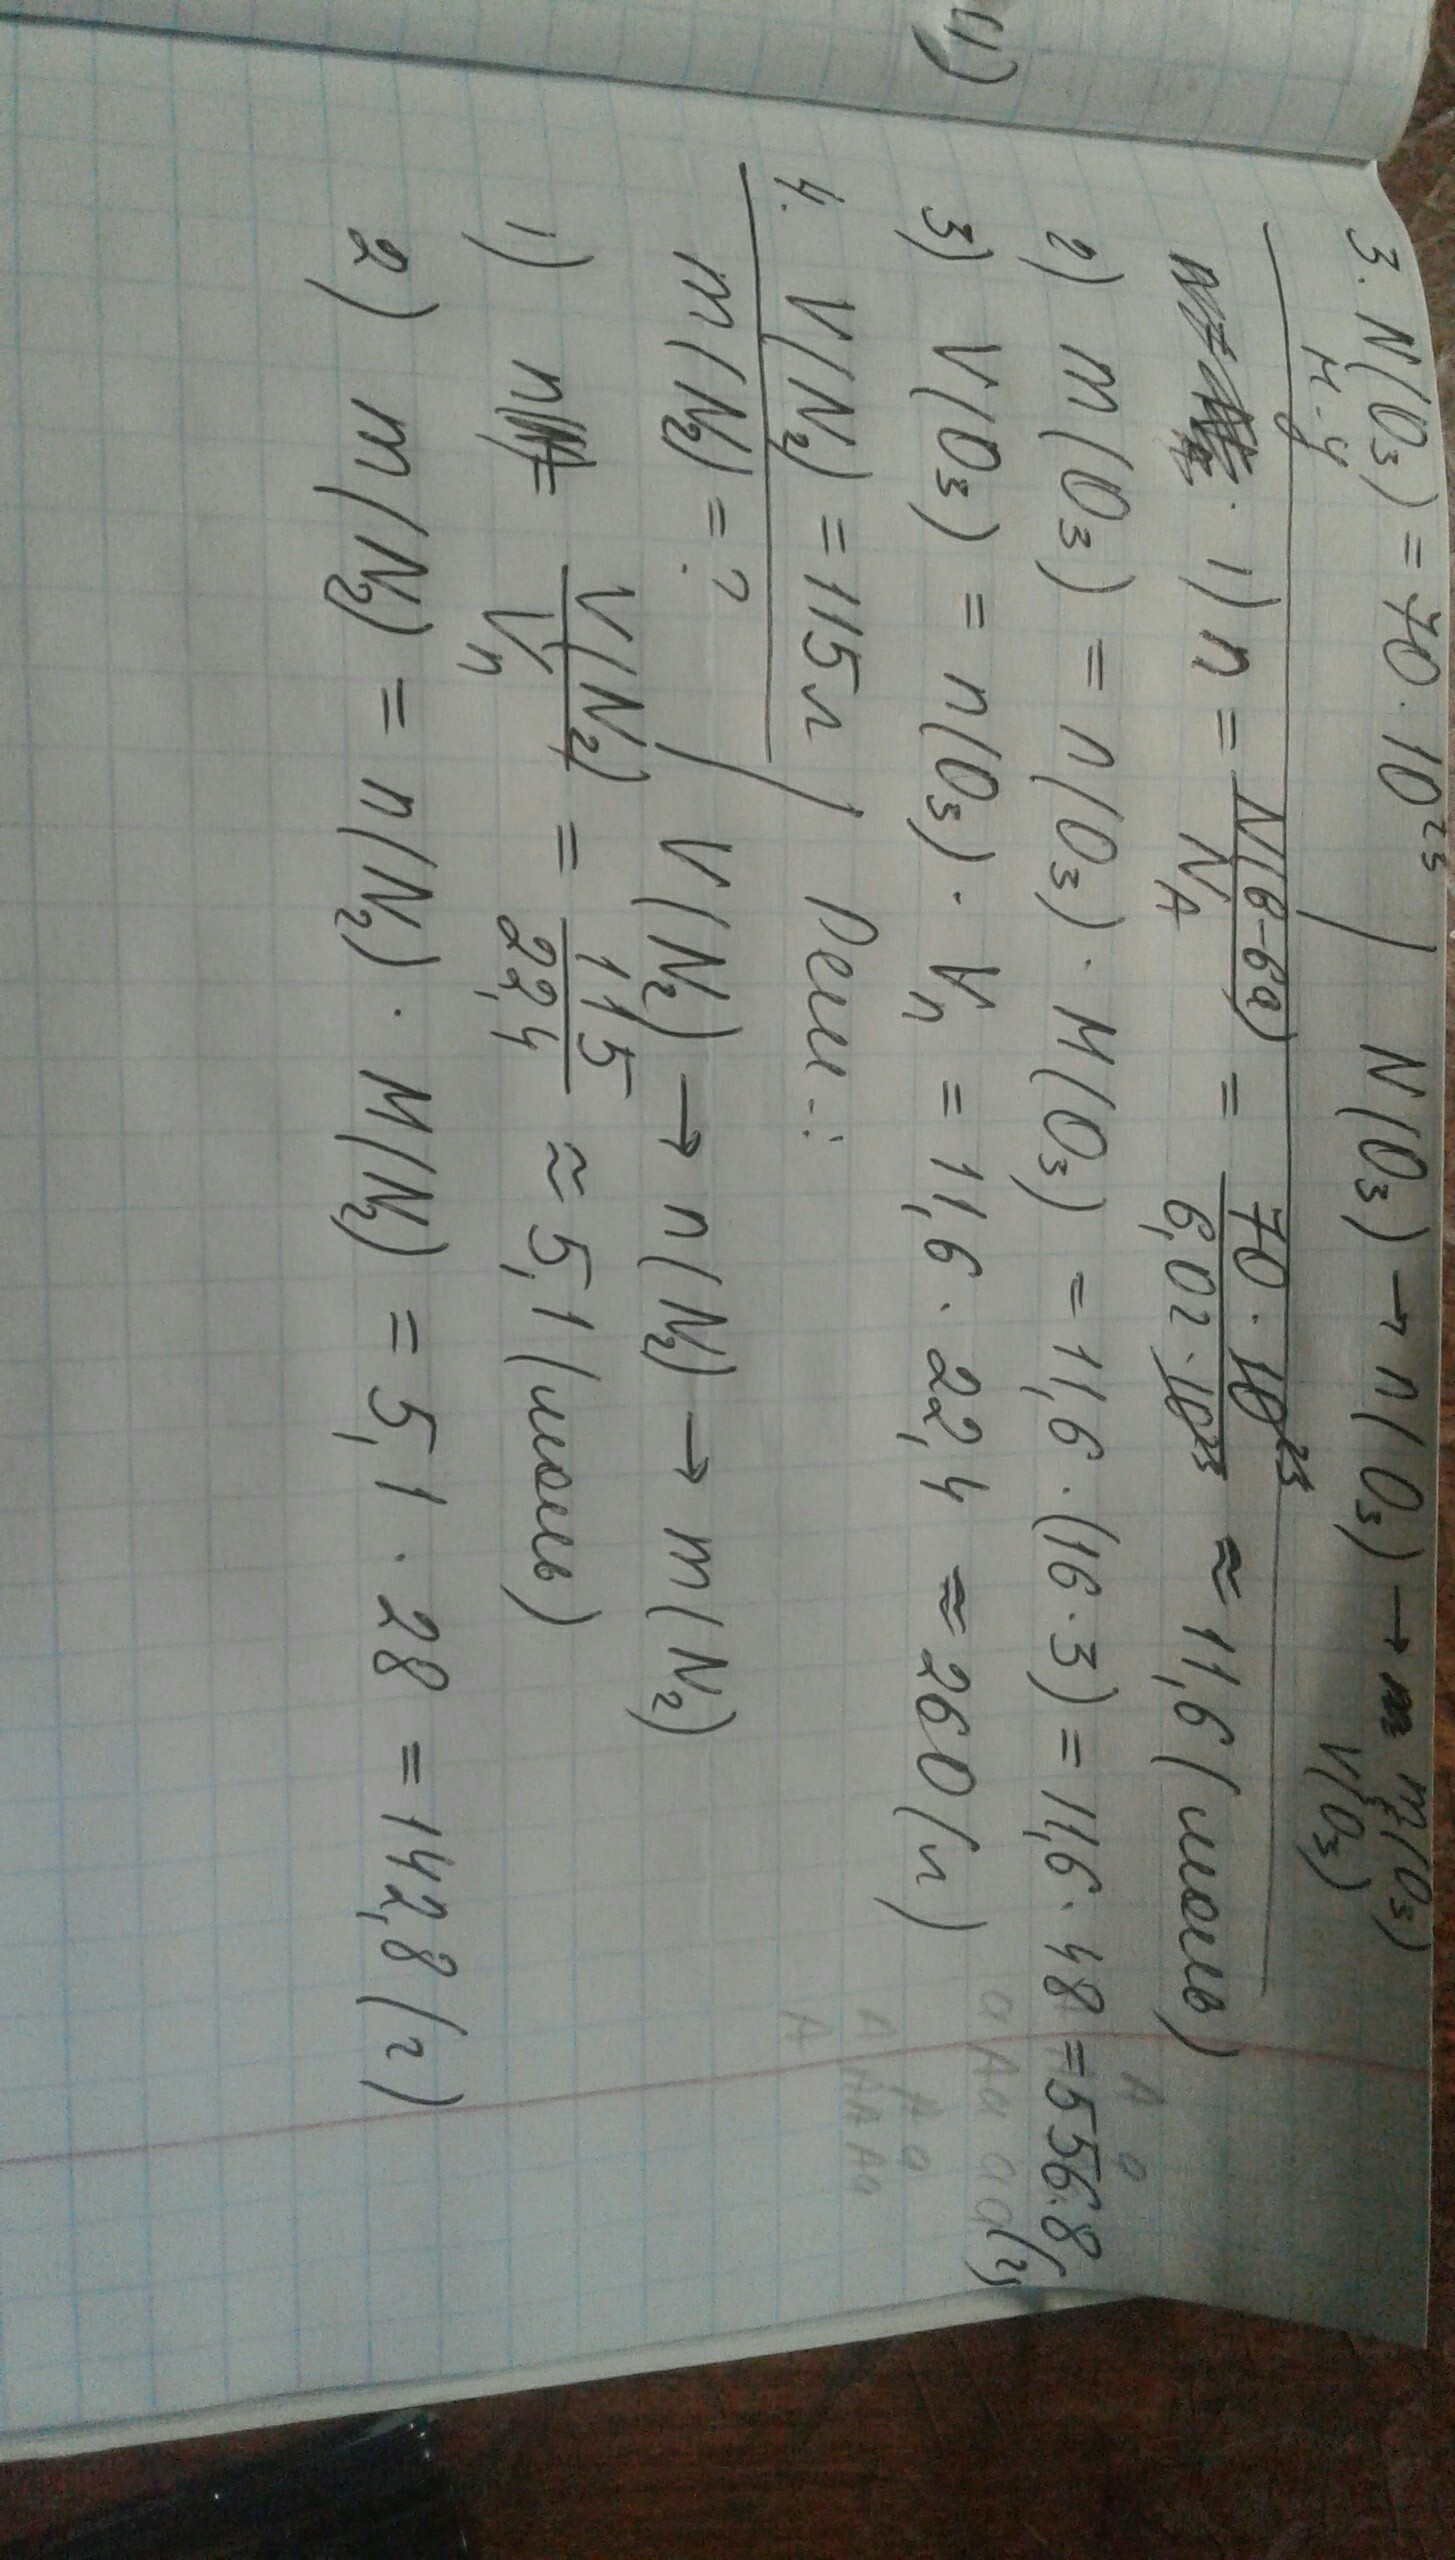 4)
3. N(O₃) = 70 · 10²³ | N(O₃) → n(O₃) → m(O₃)
м-у V(O₃)
1) n = N(в-ва)/N_A = 70 · 10²³/6,02 · 10²³ ≈ 11,6 (моль)
2) m(O₃) = n(O₃) · M(O₃) = 11,6 · (16 · 3) = 11,6 · 48 = 556.8 (г)
3) V(O₃) = n(O₃) · Vn = 11,6 · 22,4 ≈ 260 (л)
4. V(N₂) = 115 л | Реш-:
m(N₂) = ? V(N₂) → n(N₂) → m(N₂)
1) n = V(N₂)/Vn = 115/22,4 ≈ 5,1 (моль)
2) m(N₂) = n(N₂) · M(N₂) = 5,1 · 28 = 142,8 (г)